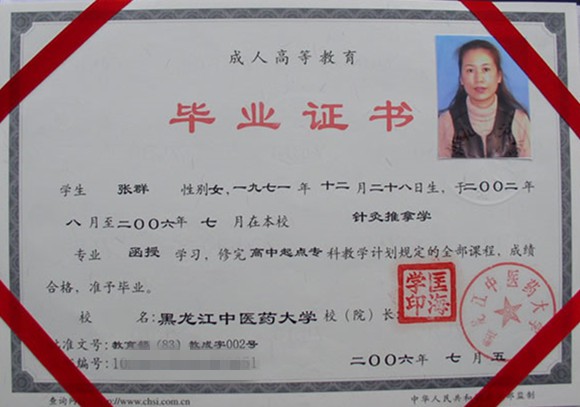 成人高等教育
毕业证书
学生 张群 性别女,一九七一年 十二月二十八日生,于二〇〇二年
八月至二〇〇六年 七 月在本校 针灸推拿学
专业 函授 学习,修完高中起点专科教学计划规定的全部课程,成绩
合格,准予毕业。
校 名:黑龙江中医药大学 校(院)长:
匡海学印
黑龙江中医药大学
批准文号:教育 (83) 教成字002号
编号:10 51
二〇〇六年 七月 五
查询网 http://www.chsi.com.cn
中华人民共和国 部监制